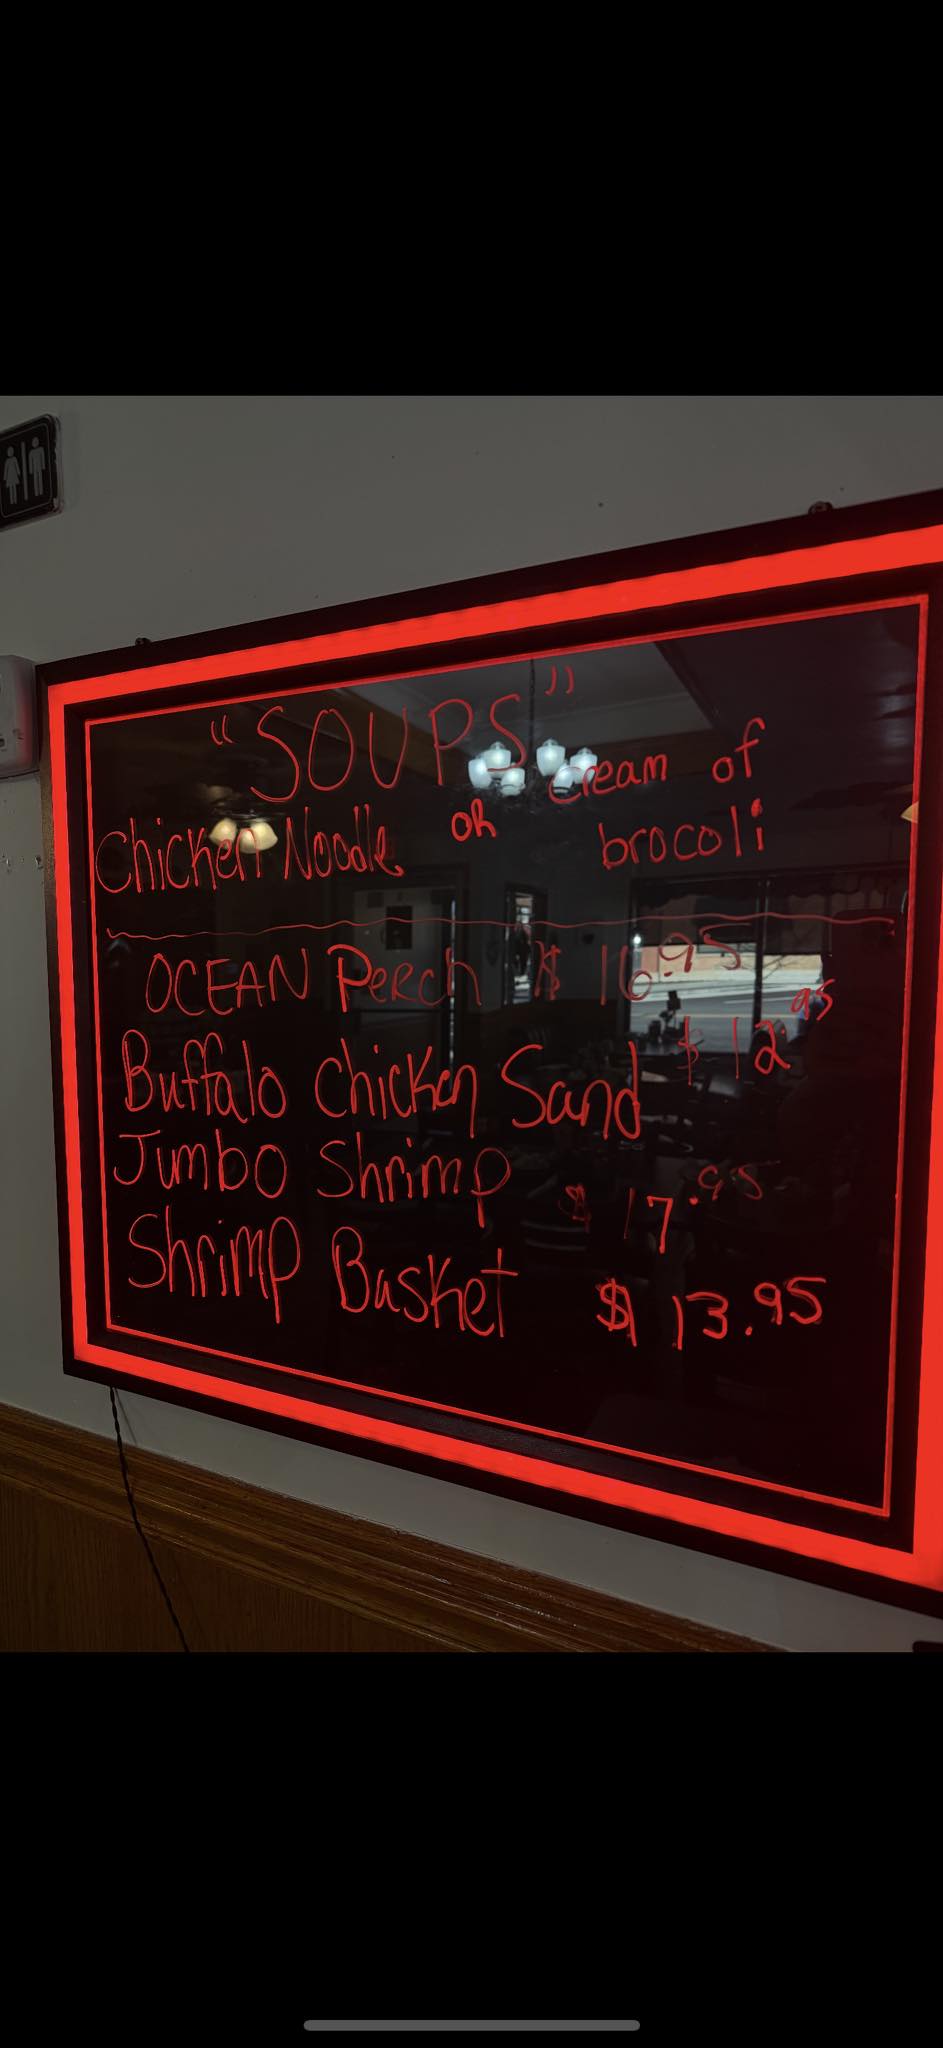 "SOUPS"
Chicken Noodle or cream of
brocoli
OCEAN Perch $ 16.95
Buffalo Chicken Sand $ 12 95
Jumbo Shrimp $ 17.95
Shrimp Basket $ 13.95